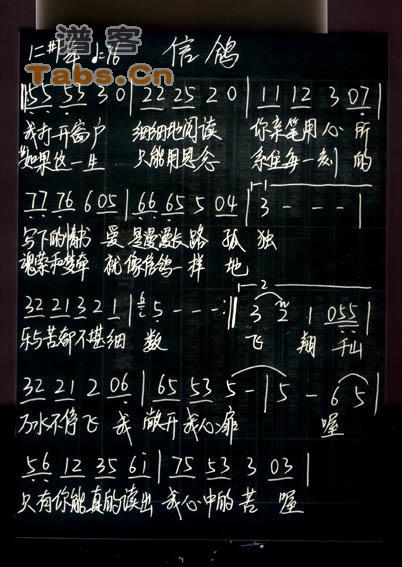 谱客
Tabs.Cn
信鸽
|55 53 3 0|22 25 2 0|11 12 3 07|
我打开窗户 细细地阅读 你亲笔用心 所
如果这一生 只能用思念 系住每一刻 的
77 76 6 05|66 65 5 04|3 - - -|
写下的情书 爱 是漫漫长路 孤 独
魂萦和梦牵 就 像信鸽一样 地
32 21 3 2 1|5 - - -:|| 3 2 1 055|
乐与苦都不堪细 数 飞 翔 千山
32 21 2 06|65 53 5 -|5 - 6 5|
万水不停飞 我 敞开我心扉 喔
56 12 35 6i|75 53 3 03|
只有你能真的读出 我心中的苦 喔